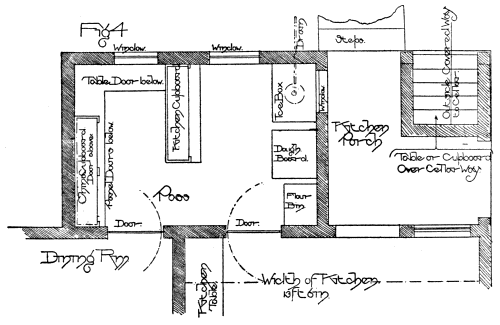 Fig 4
Window.
Window.
Drain
Steps.
Outside Covered Way
to Cellar.
Table Door below.
Kitchen Cupboard
Ice Box
Window
Kitchen
Porch
China Cupboard
Door above.
Panel Doors below.
Dough
Board
Table or Cupboard
Over Cellar Way
Flour
Bin
Door.
Door.
Dining Rm
Kitchen
Table.
Width of Kitchen